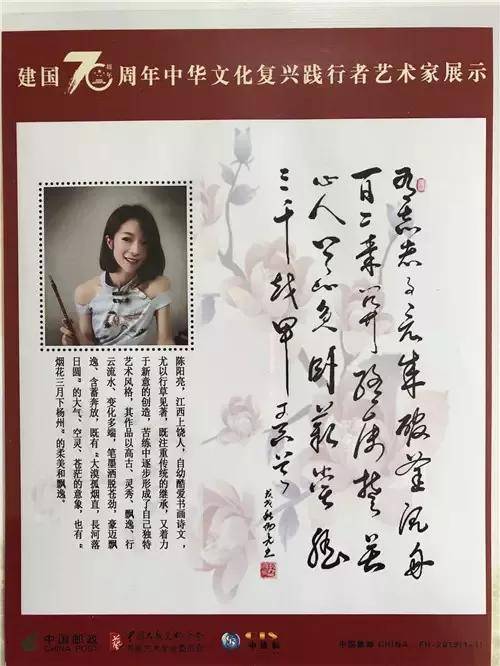 建国70周年中华文化复兴践行者艺术家展示
有志者事竟成破釜沉舟
百二秦关终属楚苦
心人天不负卧薪尝胆
三千越甲可吞吴
陈阳亮，江西上饶人，自幼酷爱书画诗文，
尤以行草见著，既注重传统的继承，又着力
于新意的创造，苦练中逐步形成了自己独特
艺术风格，其作品以高古、灵秀、飘逸、行
云流水、变化多端，笔墨洒脱苍劲，豪迈飘
逸、含蓄奔放，既有“大漠孤烟直，長河落
日圆”的大气、空灵、苍茫的意象，也有“
烟花三月下杨州”的柔美和飘逸。
中国邮政
CHINA POST
中国邮政 CHINA FH-2019(1-1)